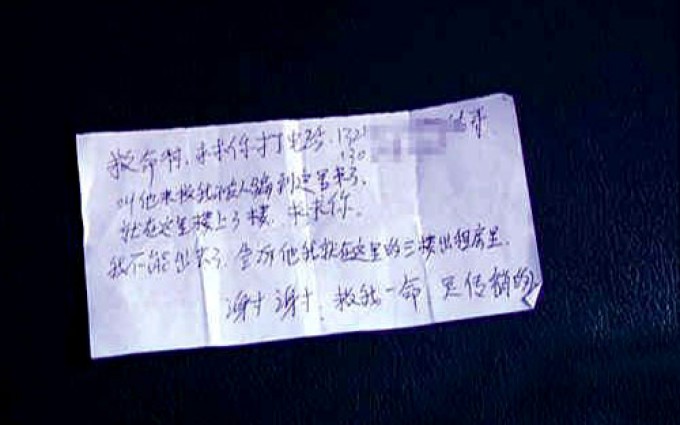 救命啊，求求你打电话，1321
130
叫他来救我我被人骗到这里来了，
就在这里楼上3楼，求求你。
我不能出去了，告诉他我就在这里的三楼出租房里。
谢谢，救我一命 是传销的